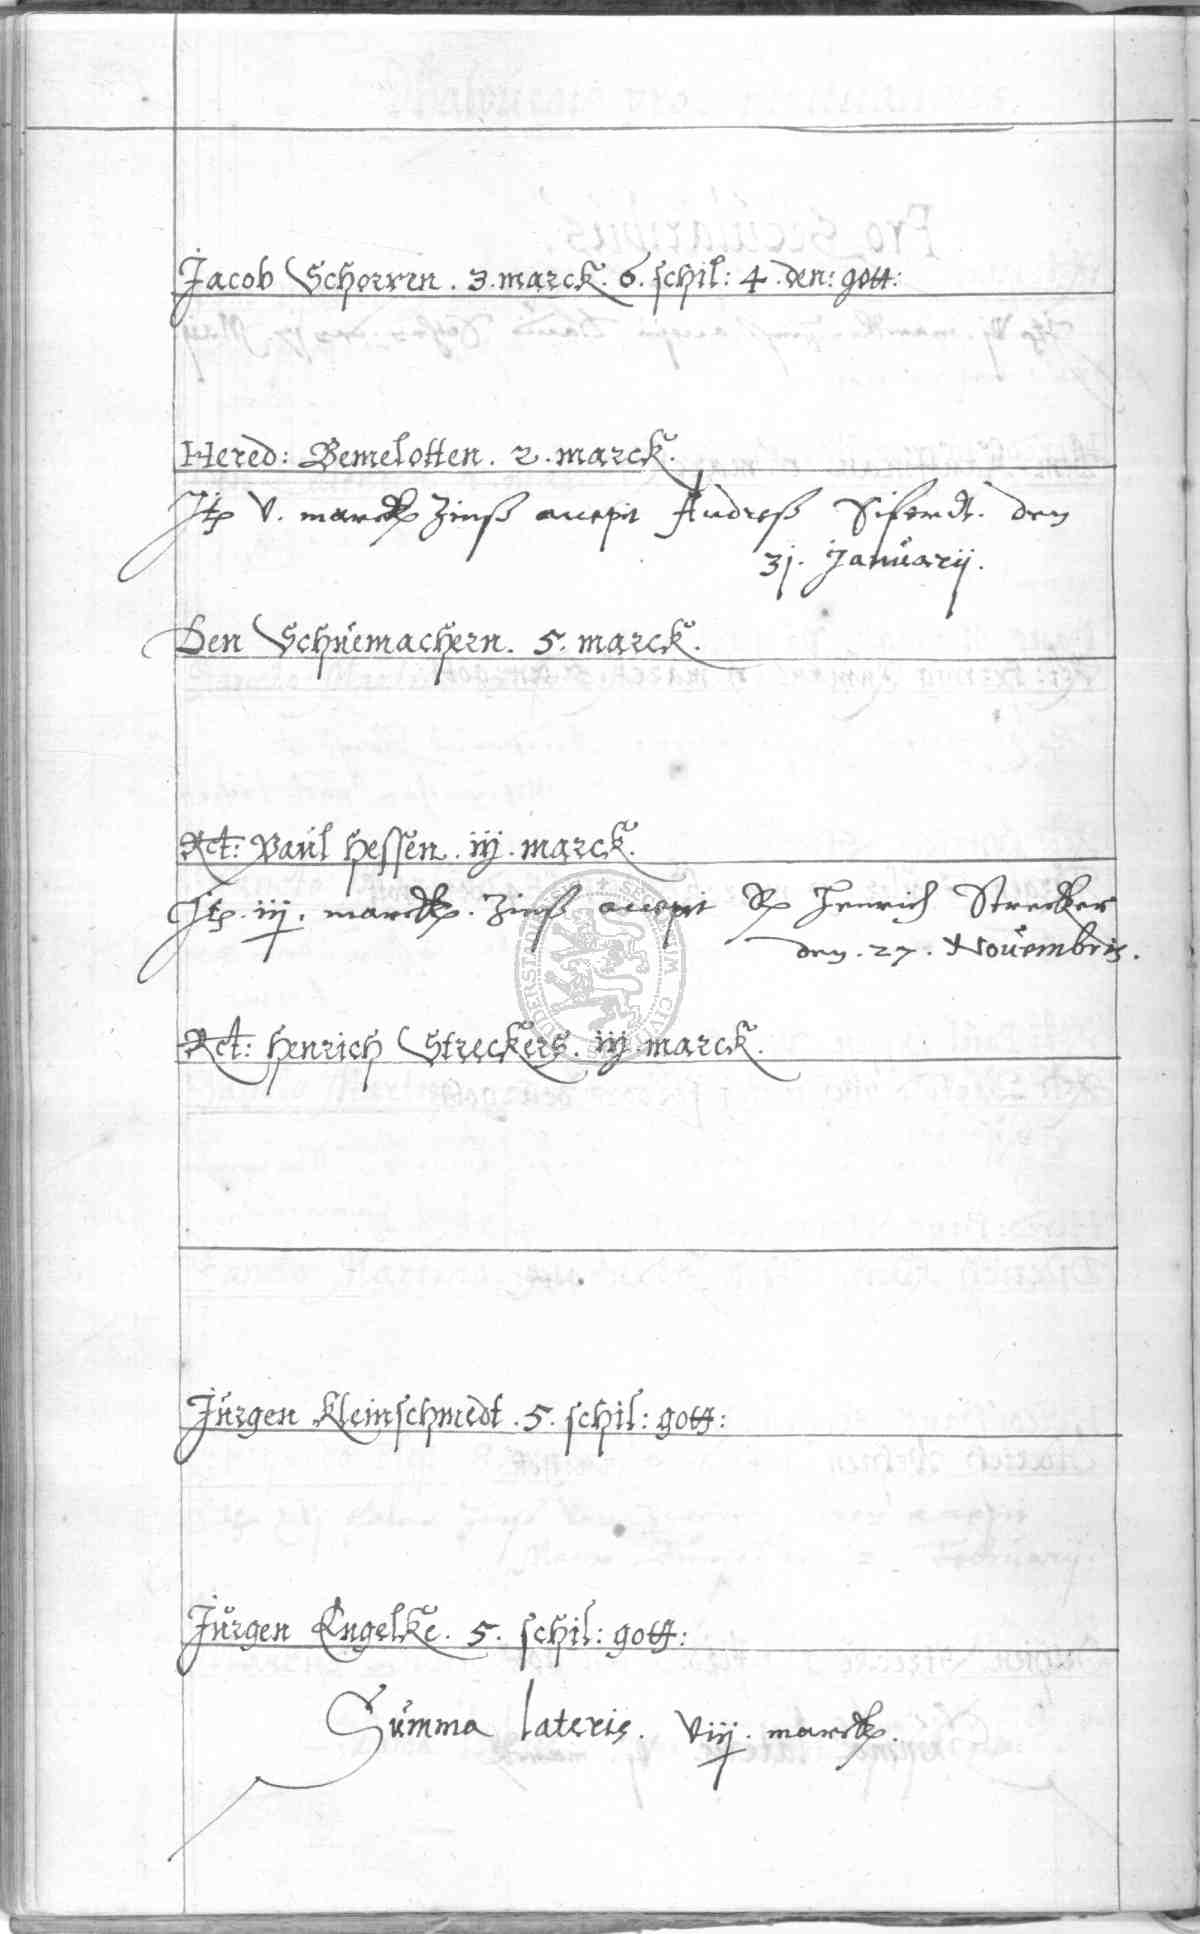 Jacob Schorren . 3 . marck . 6 . schil : 4 . den : gott :
Hered : Bemelotten . 2 . marck .
Jtp V . marck Zinß accepit Andreß Siferdt . den
31 . Januarij .
Den Schuemachern . 5 . marck .
Rct : Paul Hessen . iij . marck .
Jtp . iij . marck . Zinß accepit Rp Henrich Strecker
den . 27 . Novembris .
Rct : Henrich Streckers . iij . marck .
Jürgen Kleinschmedt . 5 . schil : gott :
Jürgen Engelke . 5 . schil : gott :
Summa lateris . Viij . marck .